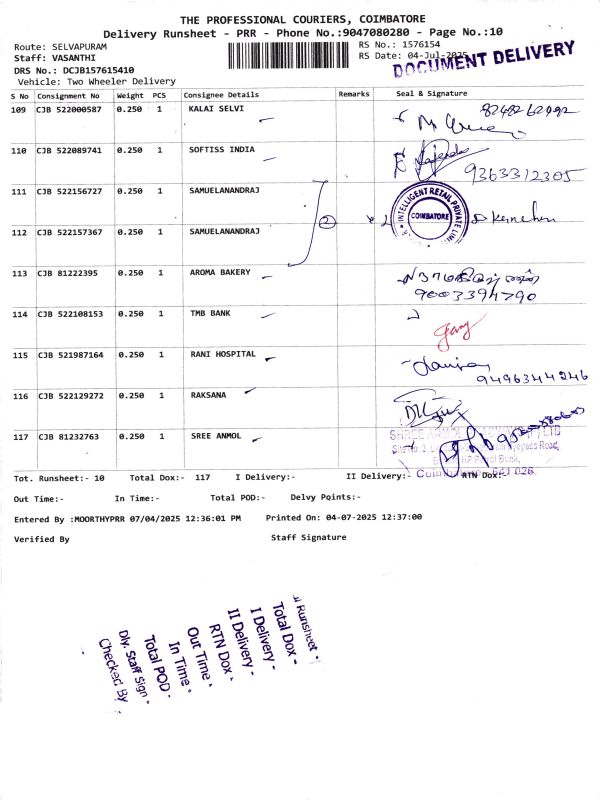 THE PROFESSIONAL COURIERS, COIMBATORE
Delivery Runsheet - PRR - Phone No.:9047080280 - Page No.:10
Route: SELVAPURAM
RS No.: 1576154
Staff: VASANTHI
RS Date: 04-Jul-2025
DRS No.: DCJB157615410
DOCUMENT DELIVERY
Vehicle: Two Wheeler Delivery
S No Consignment No Weight PCS Consignee Details Remarks Seal & Signature
109 CJB 522000587 0.250 1 KALAI SELVI 8248262992
110 CJB 522089741 0.250 1 SOFTISS INDIA 9363312305
111 CJB 522156727 0.250 1 SAMUELANANDRAJ
2
INTELLIGENT RETAIL PRIVATE LIMITED
COIMBATORE
112 CJB 522157367 0.250 1 SAMUELANANDRAJ
113 CJB 81222395 0.250 1 AROMA BAKERY
9003394790
114 CJB 522108153 0.250 1 TMB BANK
115 CJB 521987164 0.250 1 RANI HOSPITAL
9496344246
116 CJB 522129272 0.250 1 RAKSANA
117 CJB 81232763 0.250 1 SREE ANMOL
Tot. Runsheet:- 10 Total Dox:- 117 I Delivery:- II Delivery:- RTN Dox:-
Out Time:- In Time:- Total POD:- Delvy Points:-
Entered By :MOORTHYPRR 07/04/2025 12:36:01 PM Printed On: 04-07-2025 12:37:00
Verified By Staff Signature
Runsheet
Total Dox -
I Delivery -
II Delivery -
RTN Dox -
Out Time -
In Time -
Total POD -
Dly. Staff Sign -
Checked By